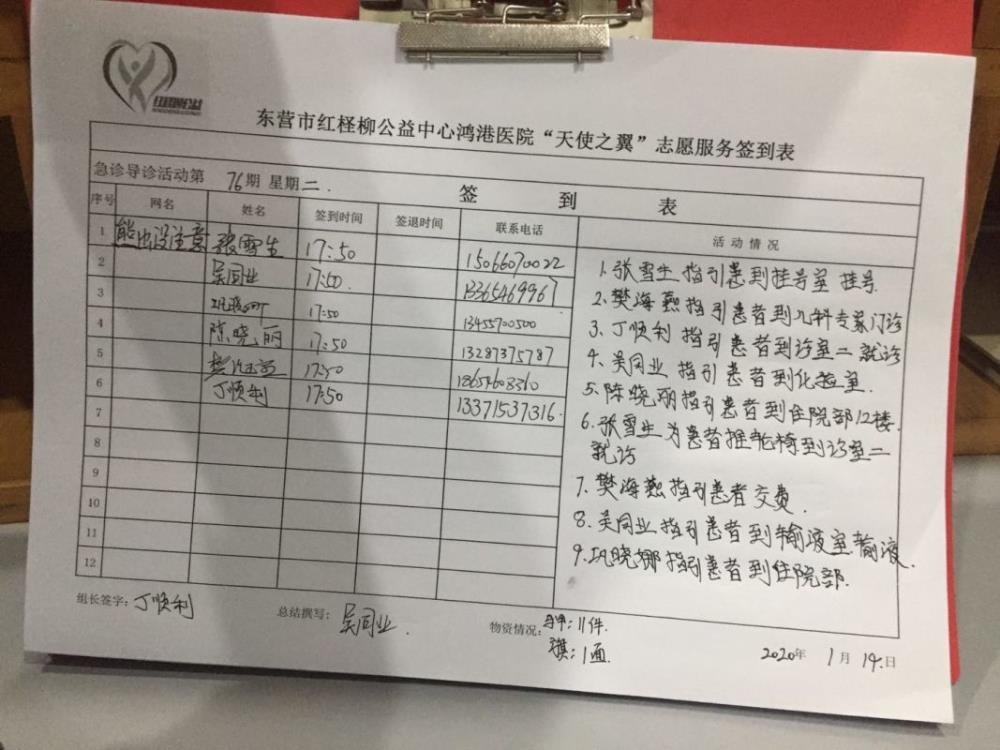 东营市红柽柳公益中心鸿港医院“天使之翼”志愿服务签到表
急诊导诊活动第 76期 星期二. 签到表
序号 网名 姓名 签到时间 签退时间 联系电话 活动情况
1 熊出没注意 张雪生 17:50 15066070022
2 吴同业 17:50. 13365469967
3 17:50 13455700500
4 陈晓丽 17:50 13287375787
5 17:50
6 丁顺利 17:50 13371537316.
7
8
9
10
11
12
1.张雪生指引患到挂号室挂号
2.樊海燕指引患者到儿科专家门诊
3.丁顺利指引患者到诊室二就诊
4.吴同业指引患者到化验室.
5.陈晓丽指引患者到住院部12楼.
6.张雪生为患者推轮椅到诊室二
就诊
7.樊海燕指引患者交费.
8.吴同业指引患者到输液室输液.
9.巩晓娜指引患者到住院部.
组长签字:丁顺利 总结撰写:吴同业. 物资情况: 11件.
旗:1面.
2020年 1月 14.日